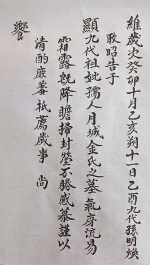 維歲次癸卯十月乙亥朔十一日乙酉九代孫明煥
敢昭告于
顯九代祖妣孺人月城金氏之墓氣序流易
霜露旣降瞻掃封塋不勝感慕謹以
淸酌庶羞祇薦歲事 尙
饗